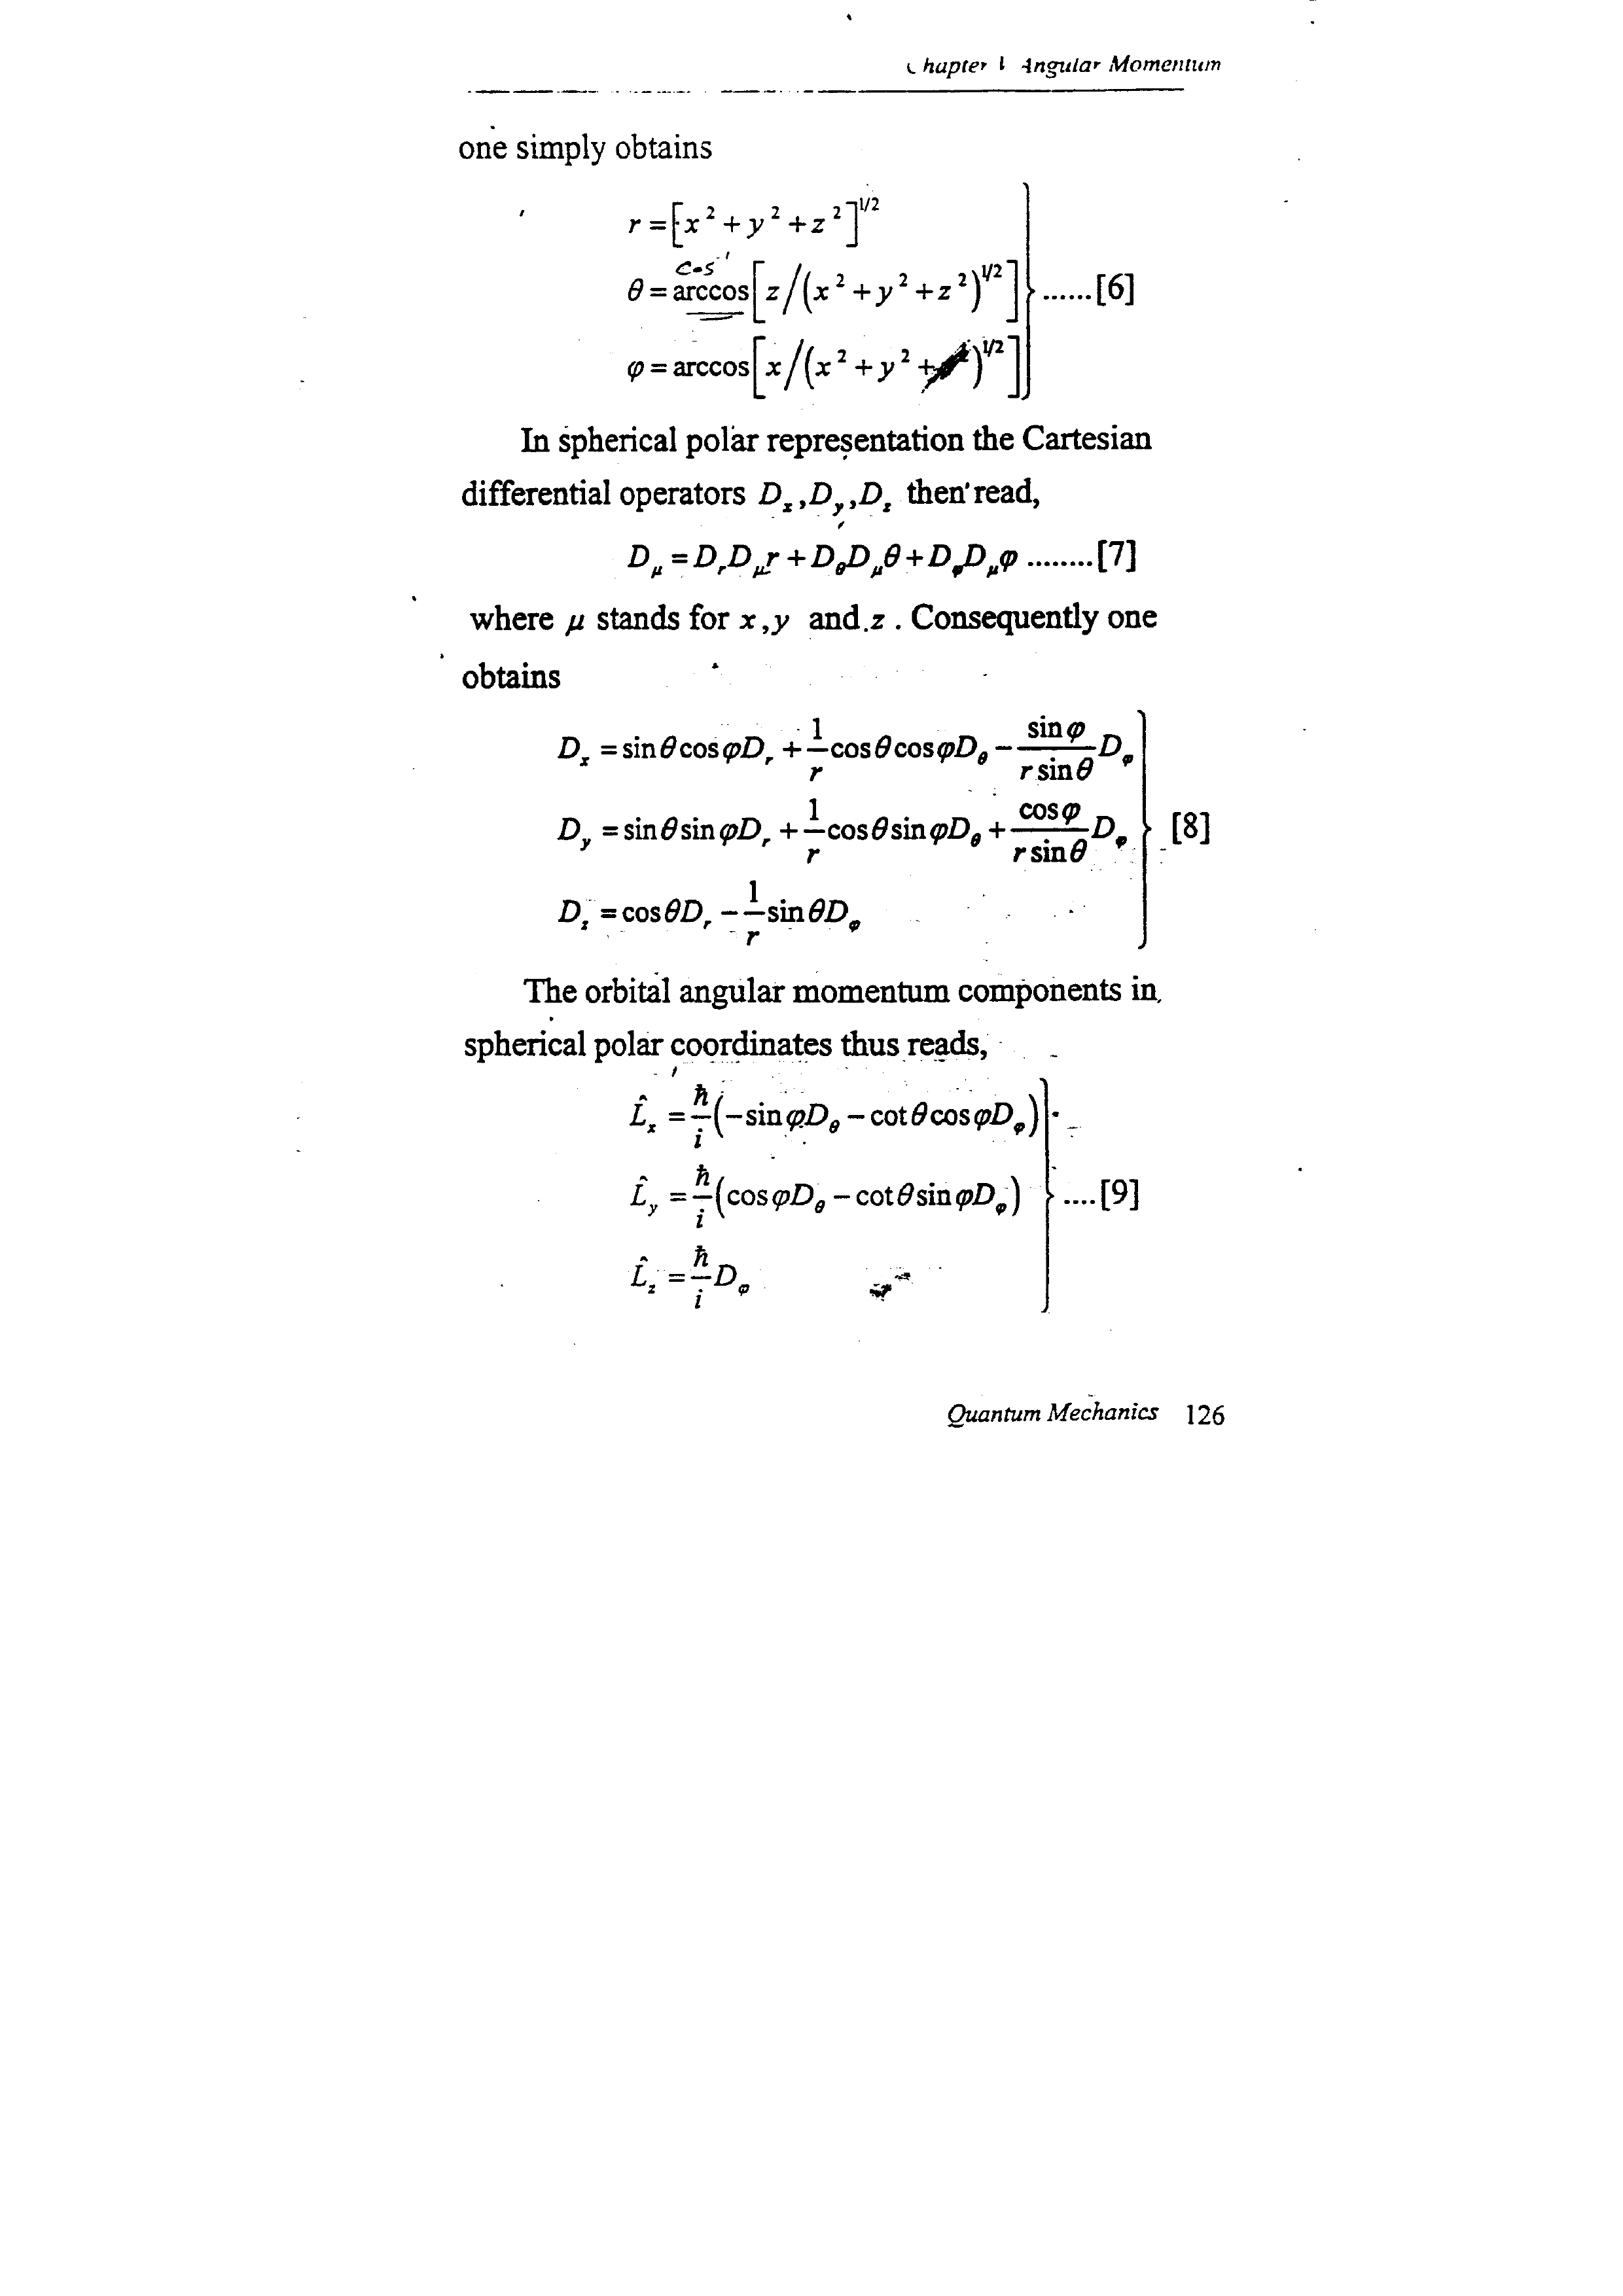 Chapter 1 Angular Momentum
one simply obtains
r = [x² + y² + z²]^{1/2}
cos⁻¹
θ = arccos[z/(x² + y² + z²)^{1/2}] ......[6]
φ = arccos[x/(x² + y² + )^{1/2}]
In spherical polar representation the Cartesian
differential operators D_x, D_y, D_z then read,
D_μ = D_r D_μ r + D_θ D_μ θ + D_φ D_μ φ ........[7]
where μ stands for x, y and z . Consequently one
obtains
D_x = sinθ cosφ D_r + \frac{1}{r} cosθ cosφ D_θ − \frac{sinφ}{r sinθ} D_φ
D_y = sinθ sinφ D_r + \frac{1}{r} cosθ sinφ D_θ + \frac{cosφ}{r sinθ} D_φ [8]
D_z = cosθ D_r − \frac{1}{r} sinθ D_φ
The orbital angular momentum components in
spherical polar coordinates thus reads,
L̂_x = \frac{ħ}{i} (−sinφ D_θ − cotθ cosφ D_φ)
L̂_y = \frac{ħ}{i} (cosφ D_θ − cotθ sinφ D_φ) ....[9]
L̂_z = \frac{ħ}{i} D_φ
Quantum Mechanics 126